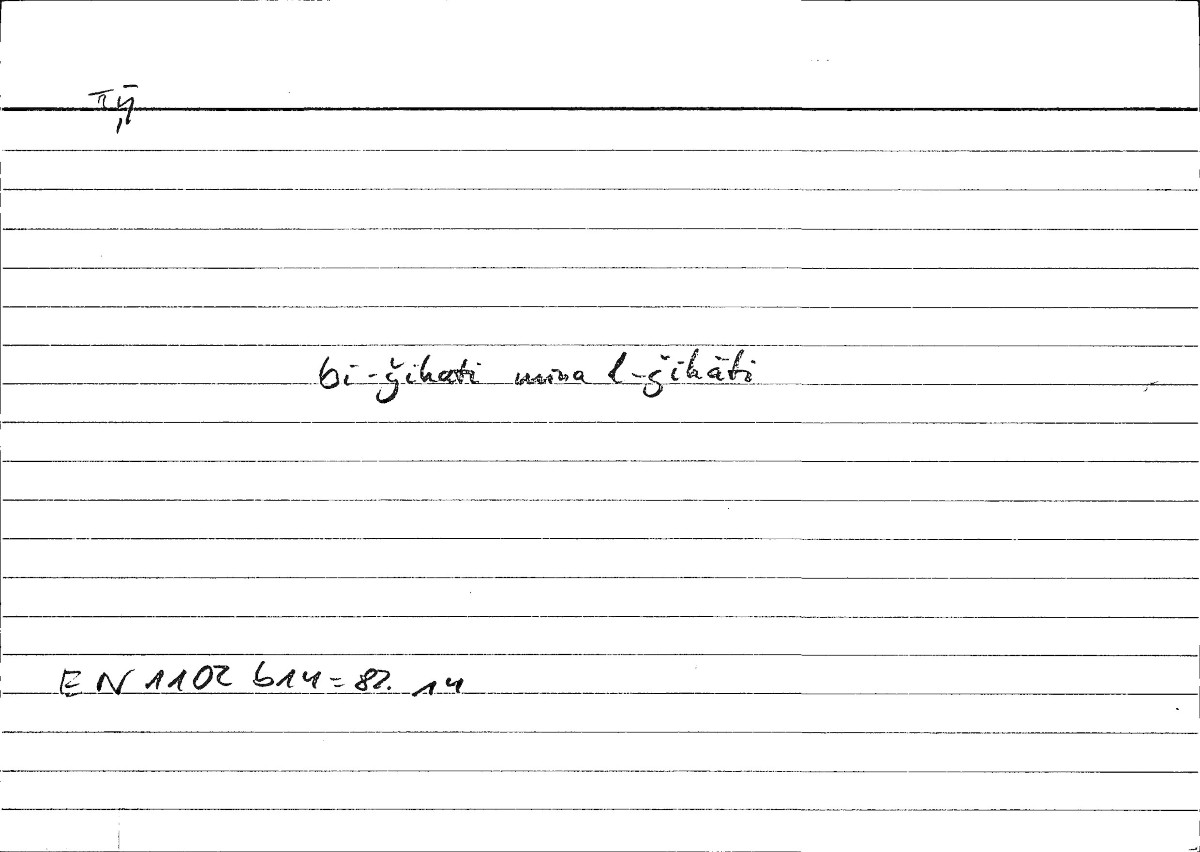 πῃ
bi-ǧihati mina l-ǧihāti
EN 1102 b14 = 82. 14